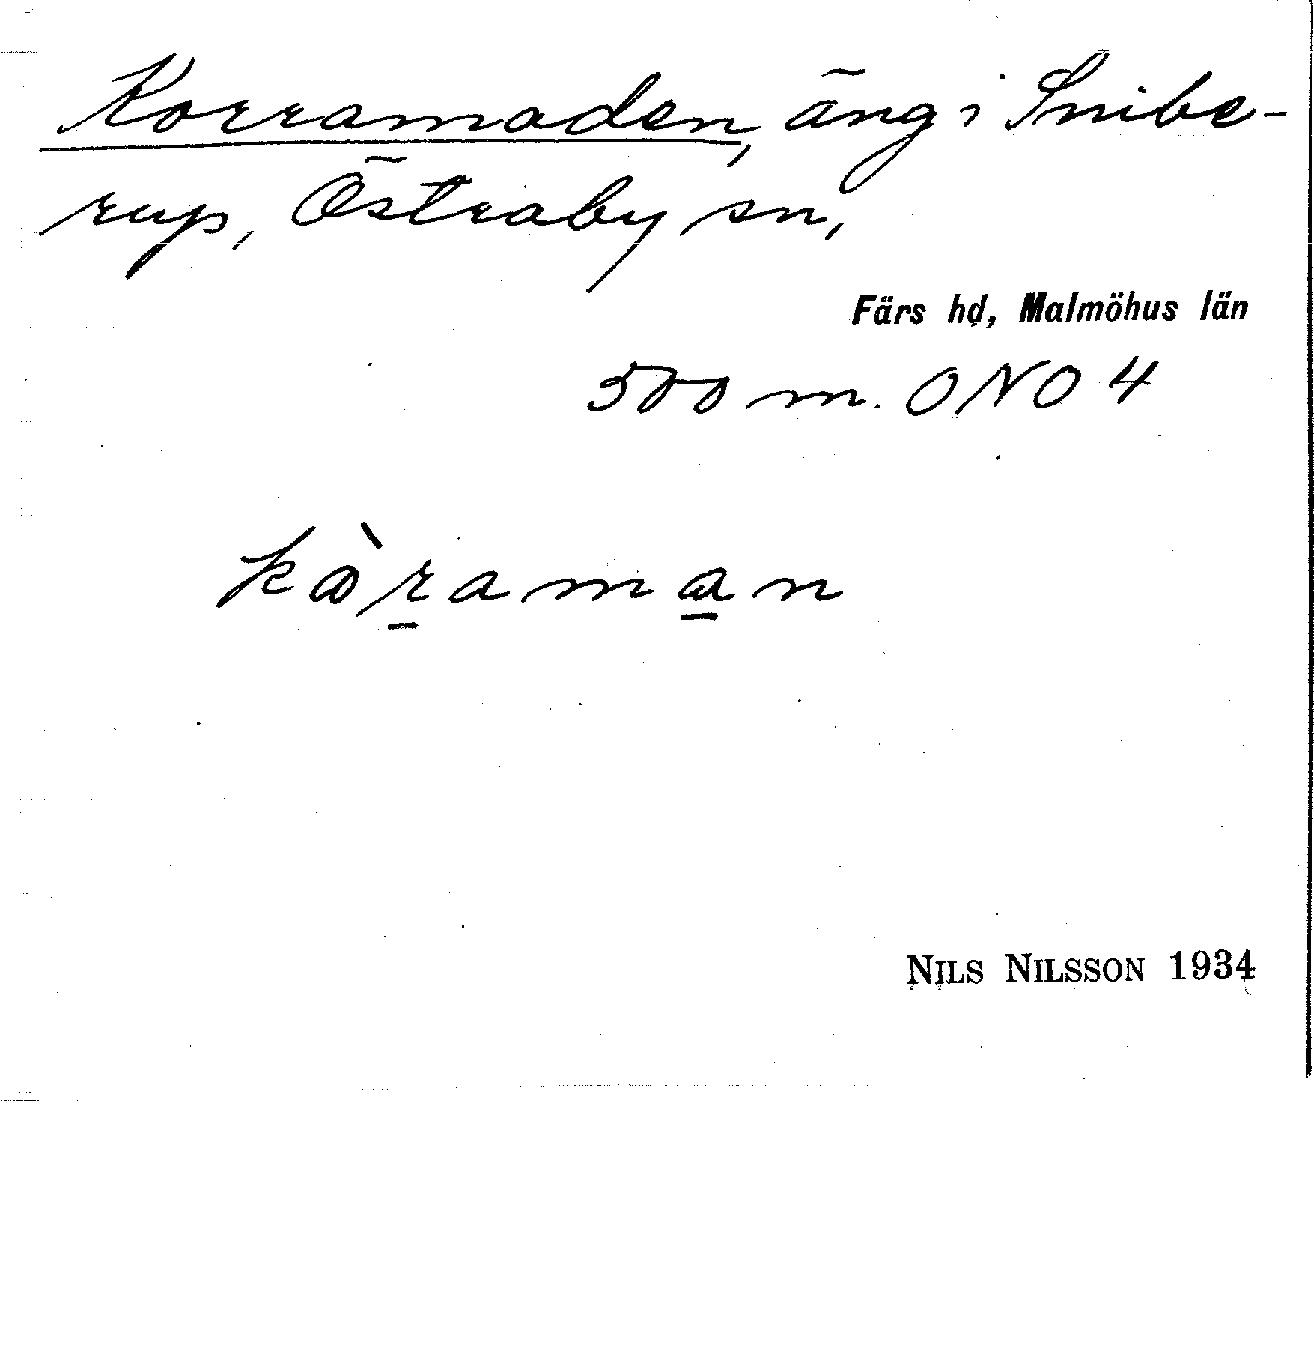 Korramaden, äng i Snibe-
rup, Östraby sn,
Färs hd, Malmöhus län
500 m. ONO 4
NILS NILSSON 1934